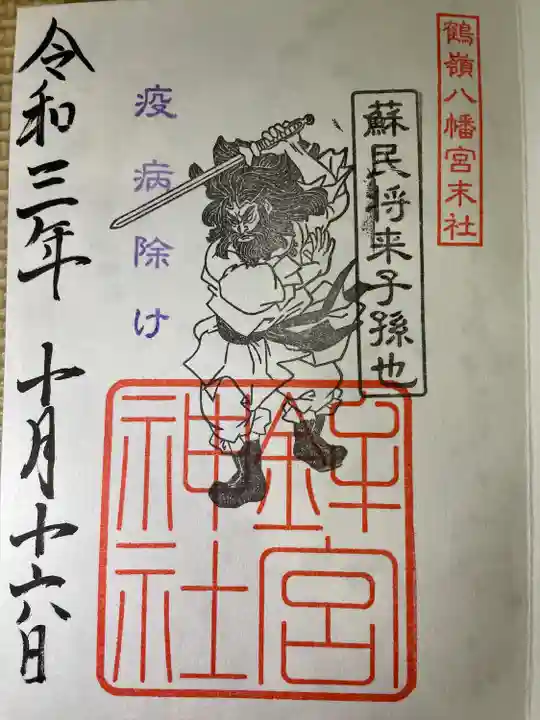 鶴嶺八幡宮末社
蘇民将来子孫也
疫病除け
鉾宮
神社
令和三年 十月十六日